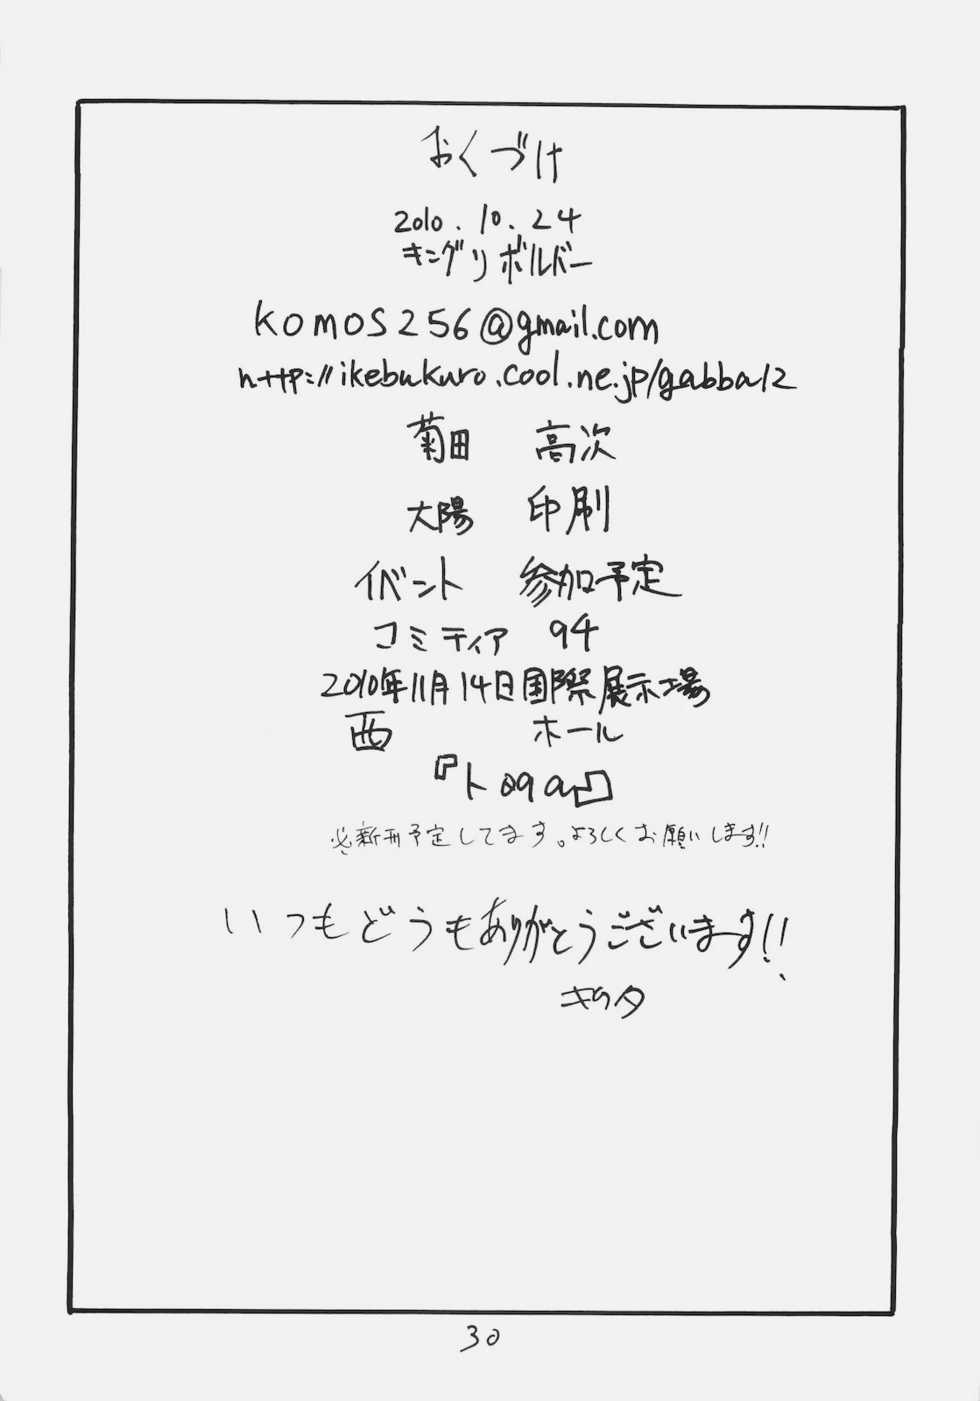 おくづけ
2010.10.24
キングリボルバー
komos256@gmail.com
http://ikebukuro.cool.ne.jp/gabba12
菊田 高次
大陽 印刷
イベント 参加予定
コミティア 94
2010年11月14日国際展示場
西 ホール
『ト09a』
新刊予定してます。よろしくお願いします!!
いつもどうもありがとうございます!!
キクタ
30